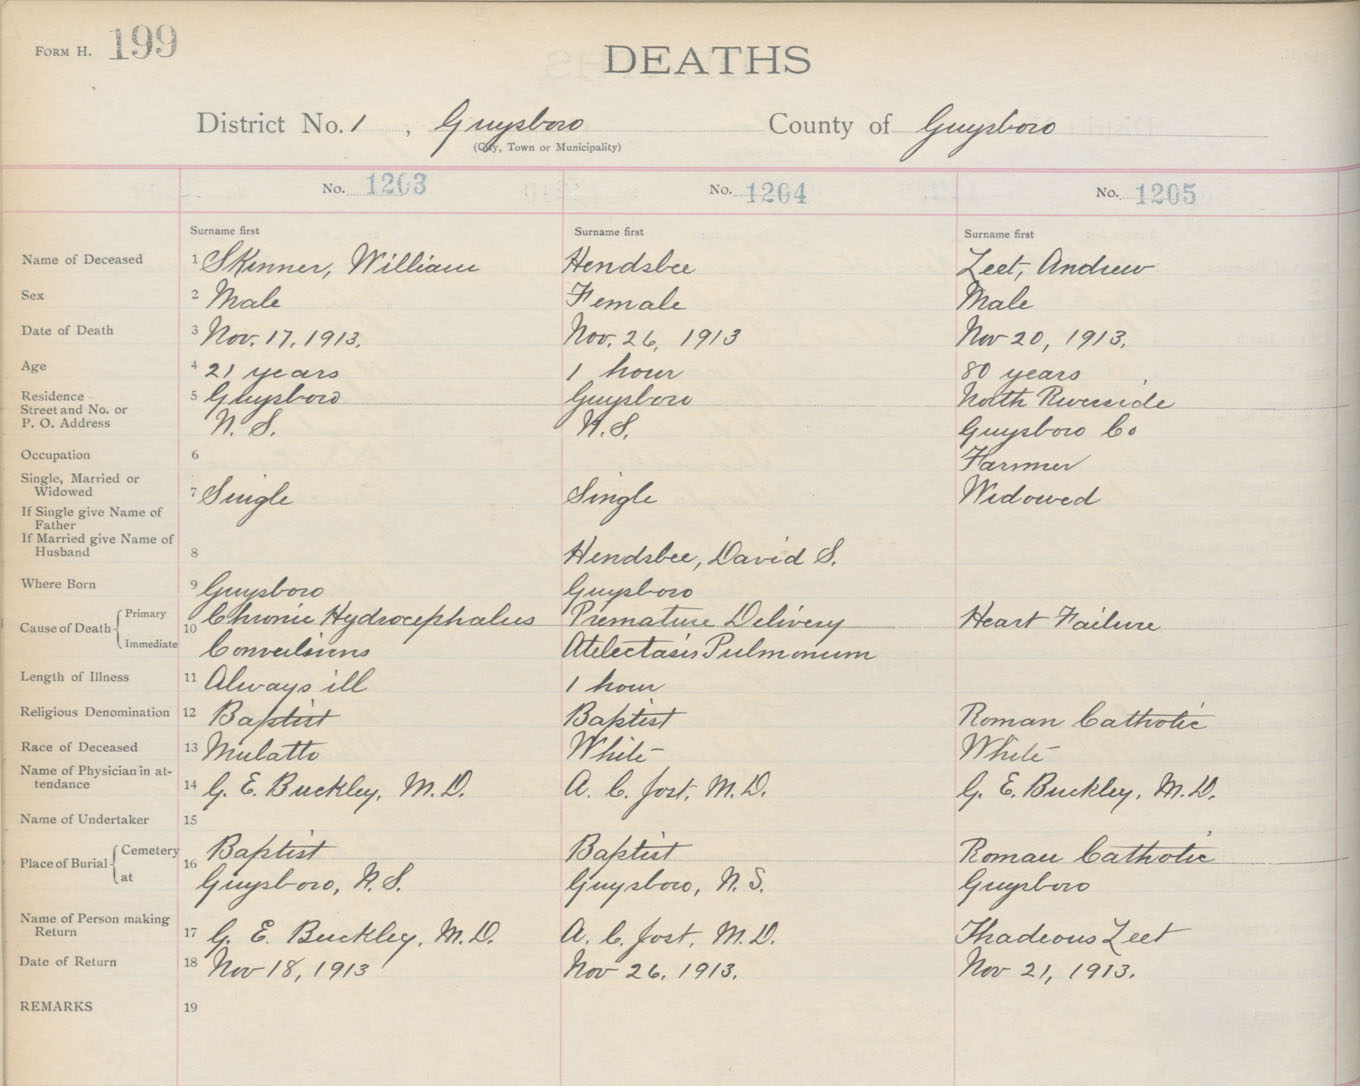 FORM H. 199
DEATHS
District No. 1, Guysboro County of Guysboro
(City, Town or Municipality)
No. 1203 No. 1204 No. 1205
Surname first Surname first Surname first
Name of Deceased 1 Skinner, William Hendsbee Leet, Andrew
Sex 2 Male Female Male
Date of Death 3 Nov. 17, 1913. Nov. 26, 1913 Nov 20, 1913.
Age 4 21 years 1 hour 80 years
Residence 5 Guysboro Guysboro North Riverside
Street and No. or
P. O. Address N. S. N. S. Guysboro Co
Occupation 6 Farmer
Single, Married or
Widowed 7 Single Single Widowed
If Single give Name of
Father
If Married give Name of
Husband 8 Hendsbee, David S.
Where Born 9 Guysboro Guysboro
Cause of Death Primary 10 Chronic Hydrocephalus Premature Delivery Heart Failure
Immediate Convulsions Atelectasis Pulmonum
Length of Illness 11 Always ill 1 hour
Religious Denomination 12 Baptist Baptist Roman Catholic
Race of Deceased 13 Mulatto White White
Name of Physician in at-
tendance 14 G. E. Buckley, M.D. A. C. Jost, M.D. G. E. Buckley, M.D.
Name of Undertaker 15
Place of Burial Cemetery 16 Baptist Baptist Roman Catholic
at Guysboro, N.S. Guysboro, N.S. Guysboro
Name of Person making
Return 17 G. E. Buckley, M.D. A. C. Jost, M.D. Thadeous Leet
Date of Return 18 Nov 18, 1913 Nov 26, 1913. Nov 21, 1913.
REMARKS 19